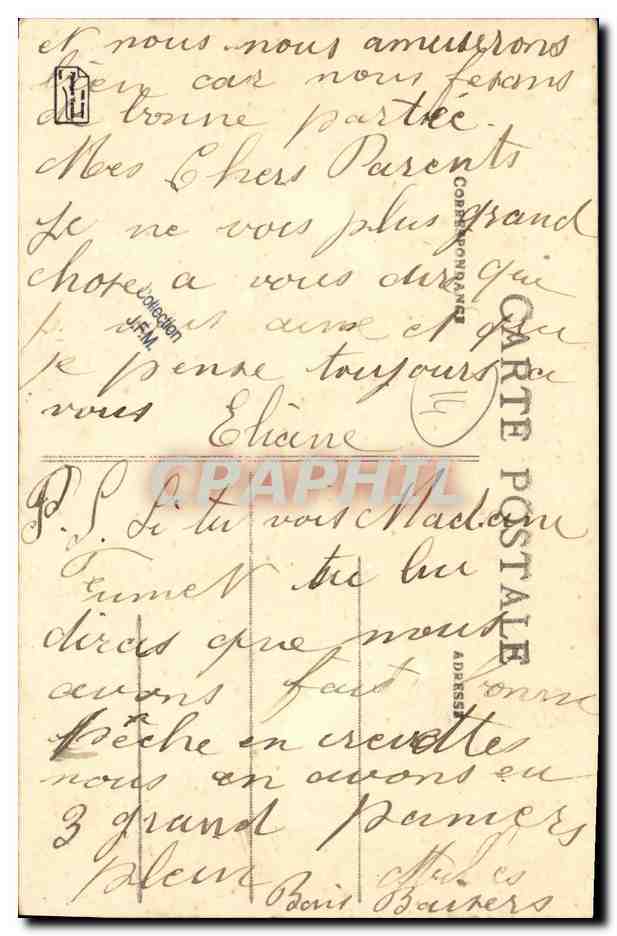 et nous nous amuserons
bien car nous ferons
de bonne partie.
Mes Chers Parents
Je ne vois plus grand
chose a vous dire que
je vous aime et que
je pense toujours a
vous
Eliane
P.S. Si tu vois Madame
tu lui
diras que nous
avons fait bonne
pêche en crevettes
nous en avons eu
3 grand paniers
plein
Bons Baisers
CARTE POSTALE
CORRESPONDANCE
ADRESSE
Collection
J.F.M.
CPAPHIL